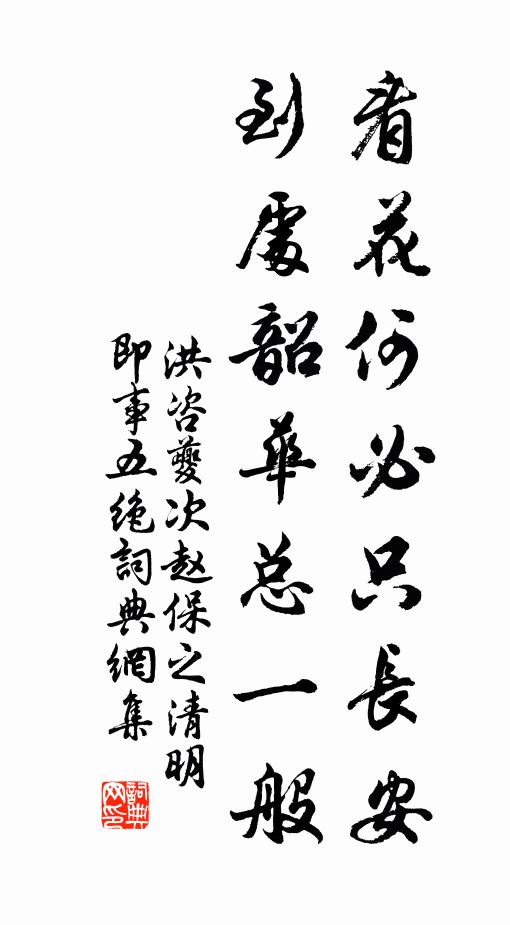 看花何必只長安
到處韶華总一般
洪咨夔次赵保之清明
即事五绝詞典網集
詞典网印